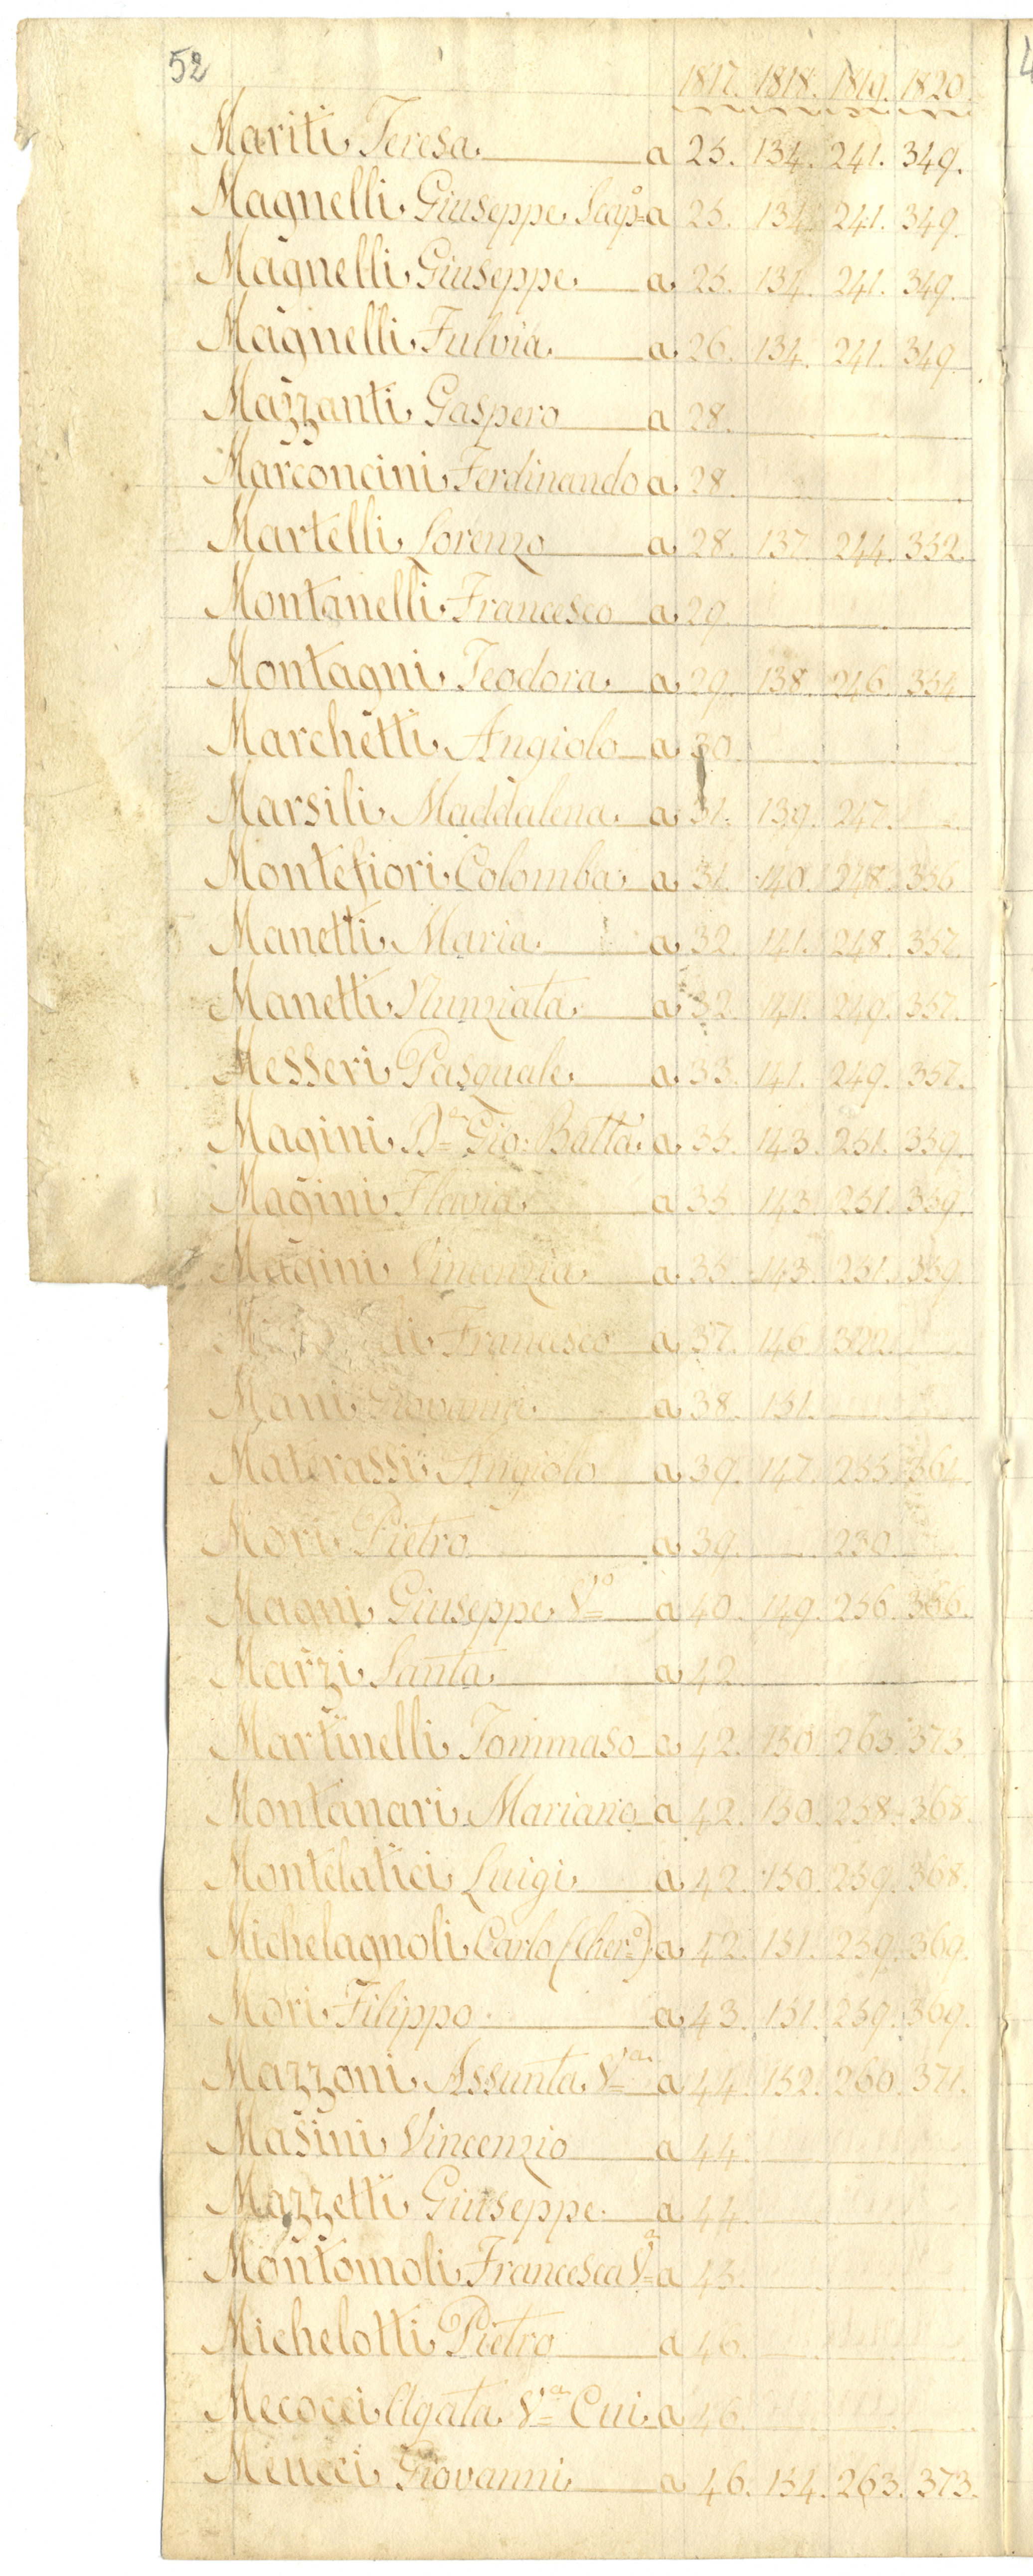 52
1817. 1818. 1819. 1820.
Mariti Teresa a 25. 134. 241. 349.
Magnelli Giuseppe Scap.º a 25. 134. 241. 349.
Magnelli Giuseppe a 25. 134. 241. 349.
Magnelli Fulvia a 26. 134. 241. 349.
Mazzanti Gaspero a 28.
Marconcini Ferdinando a 28.
Martelli Lorenzo a 28. 137. 244. 352.
Montanelli Francesco a 29.
Montagni Teodora a 29. 138. 246. 354.
Marchetti Angiolo a 30.
Marsili Maddalena a 31. 139. 247.
Montefiori Colomba a 31. 140. 248. 356.
Manetti Maria a 32. 141. 248. 357.
Manetti Nunziata a 32. 141. 249. 357.
Messeri Pasquale a 33. 141. 249. 357.
Magini D.r Gio: Batta a 35. 143. 251. 359.
Magini Flavia a 35. 143. 251. 359.
Magini Vincenzia a 35. 143. 251. 359.
Francesco a 37. 146. 322.
Mani Giovanni a 38. 151.
Materassi Angiolo a 39. 147. 255. 364.
Mori Pietro a 39. 250.
Magni Giuseppe V.º a 40. 149. 256. 366.
Marzi Santa a 42.
Martinelli Tommaso a 42. 150. 263. 373.
Montanari Mariano a 42. 150. 258. 368.
Montelatici Luigi a 42. 150. 259. 368.
Michelagnoli Carlo (Cher.º) a 42. 151. 259. 369.
Mori Filippo a 43. 151. 259. 369.
Mazzoni Assunta V.a a 44. 152. 260. 371.
Masini Vincenzio a 44.
Mazzetti Giuseppe a 44.
Montomoli Francesca V.a a 45.
Michelotti Pietro a 46.
Mecocci Agata V.a Cui a 46.
Meucci Giovanni a 46. 154. 263. 373.